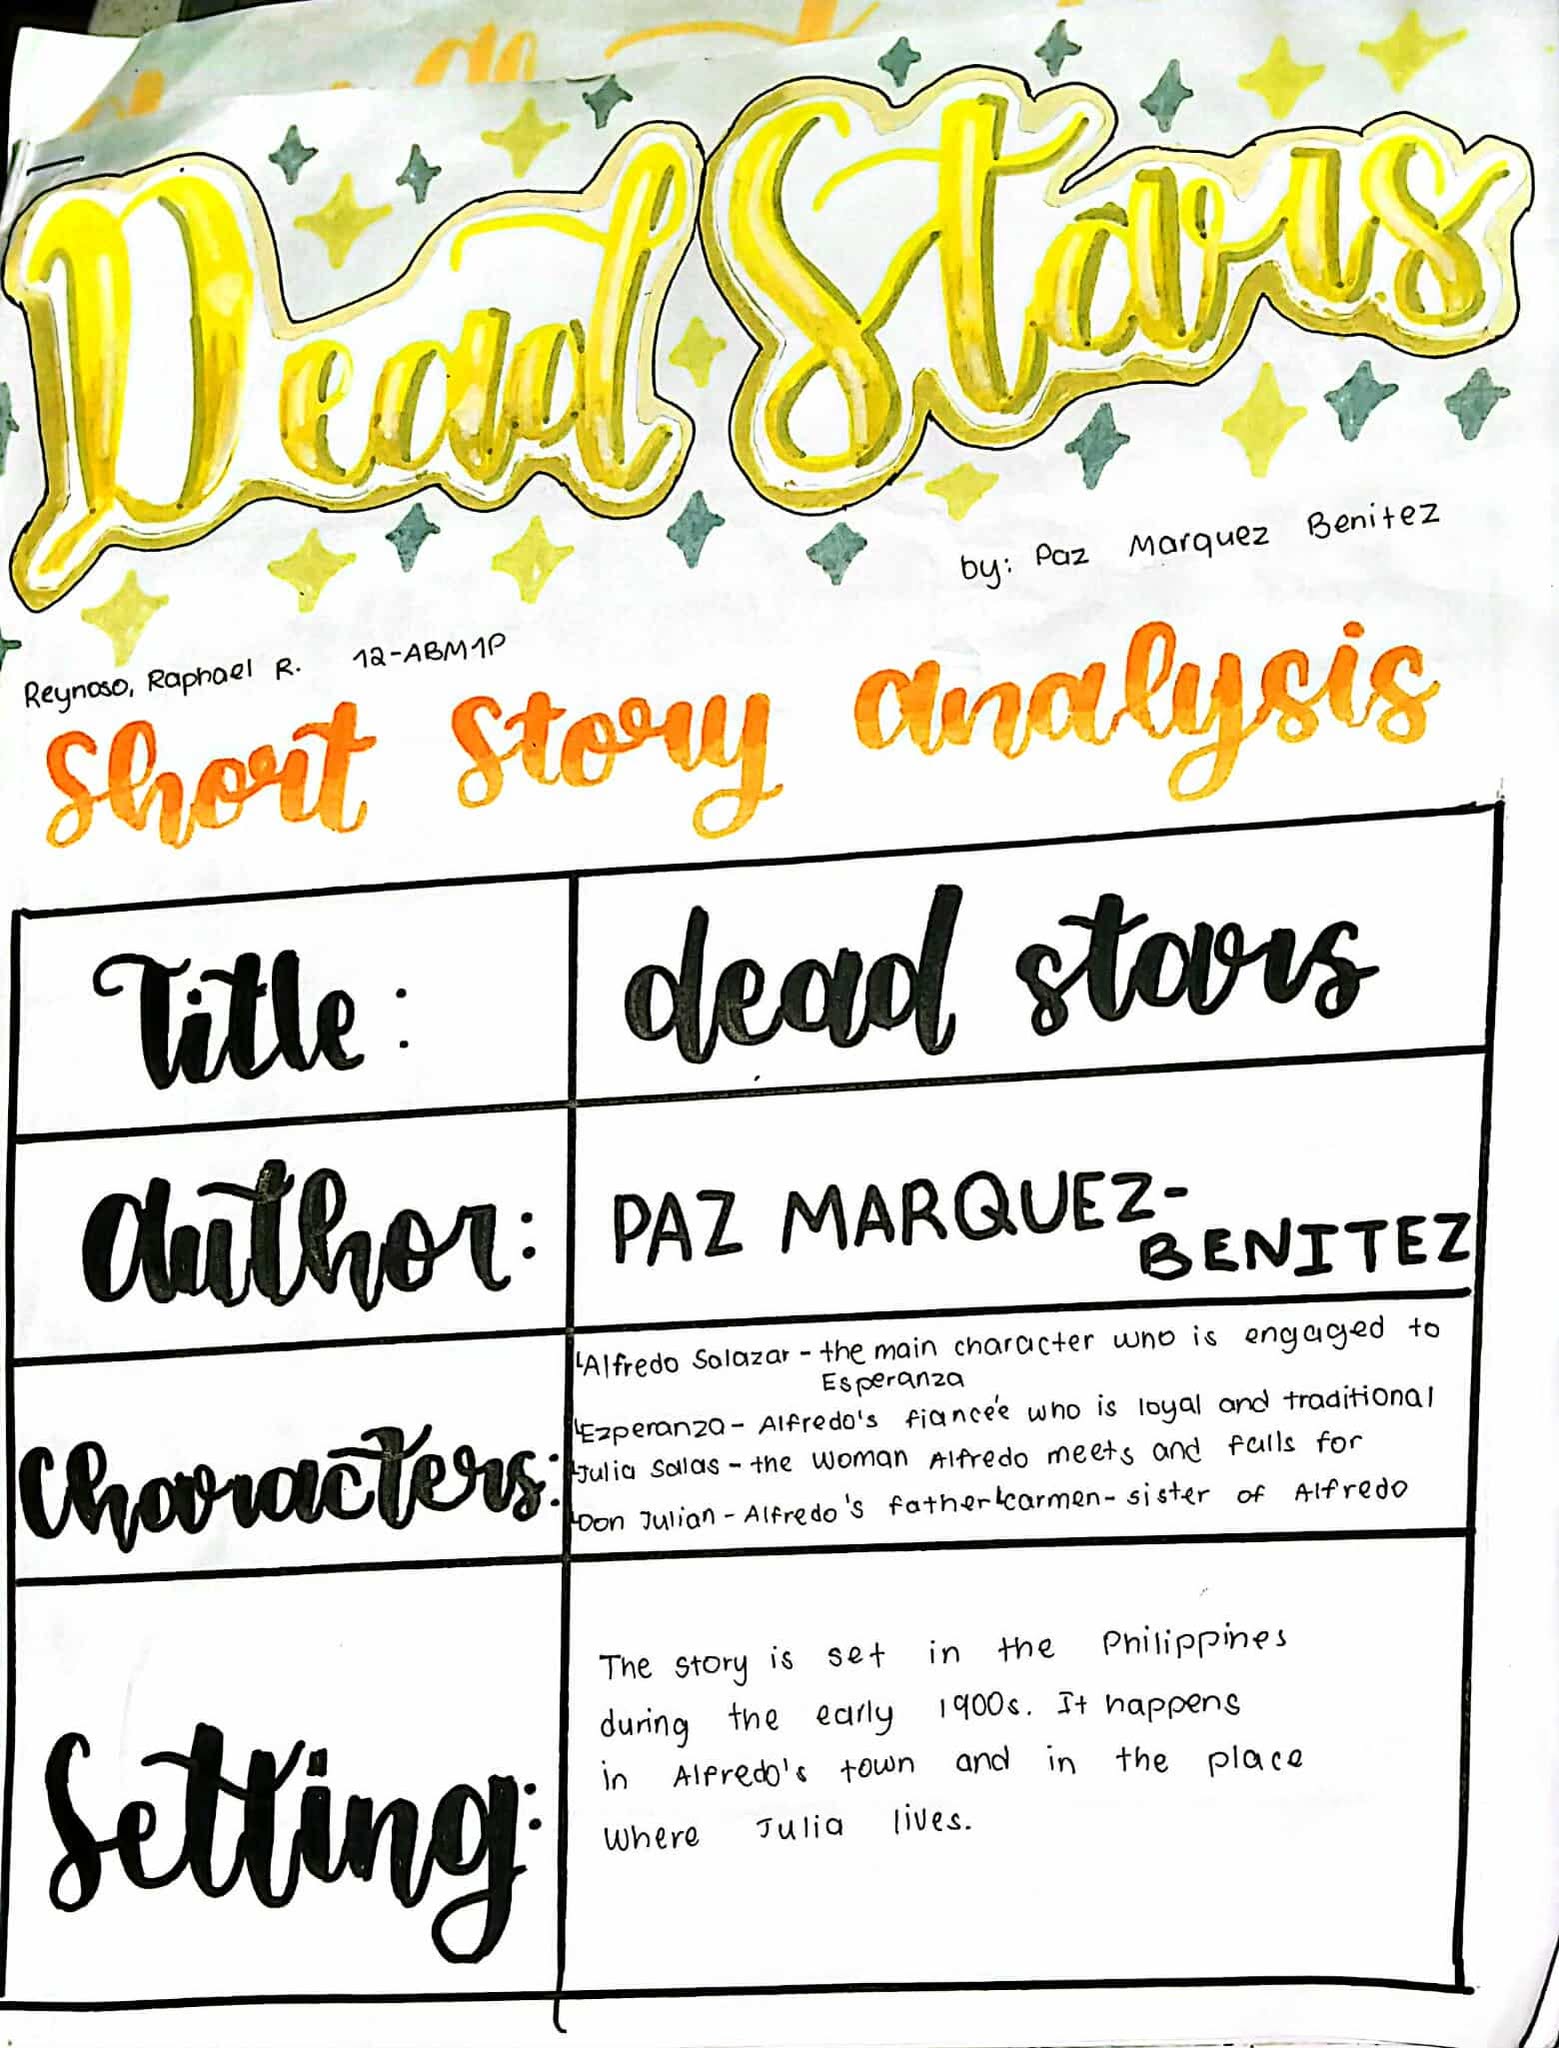 Dead Stars
by: Paz Marquez Benitez
Reynoso, Raphael R. 12-ABM1P
Short Story Analysis
Title: dead stars
Author: PAZ MARQUEZ-
BENITEZ
Characters:
Alfredo Salazar - the main character who is engaged to
Esperanza
Ezperanza - Alfredo's fianceé who is loyal and traditional
Julia Salas - the woman Alfredo meets and falls for
Don Julian - Alfredo's father carmen - sister of Alfredo
Setting:
The story is set in the Philippines
during the early 1900s. It happens
in Alfredo's town and in the place
where Julia lives.